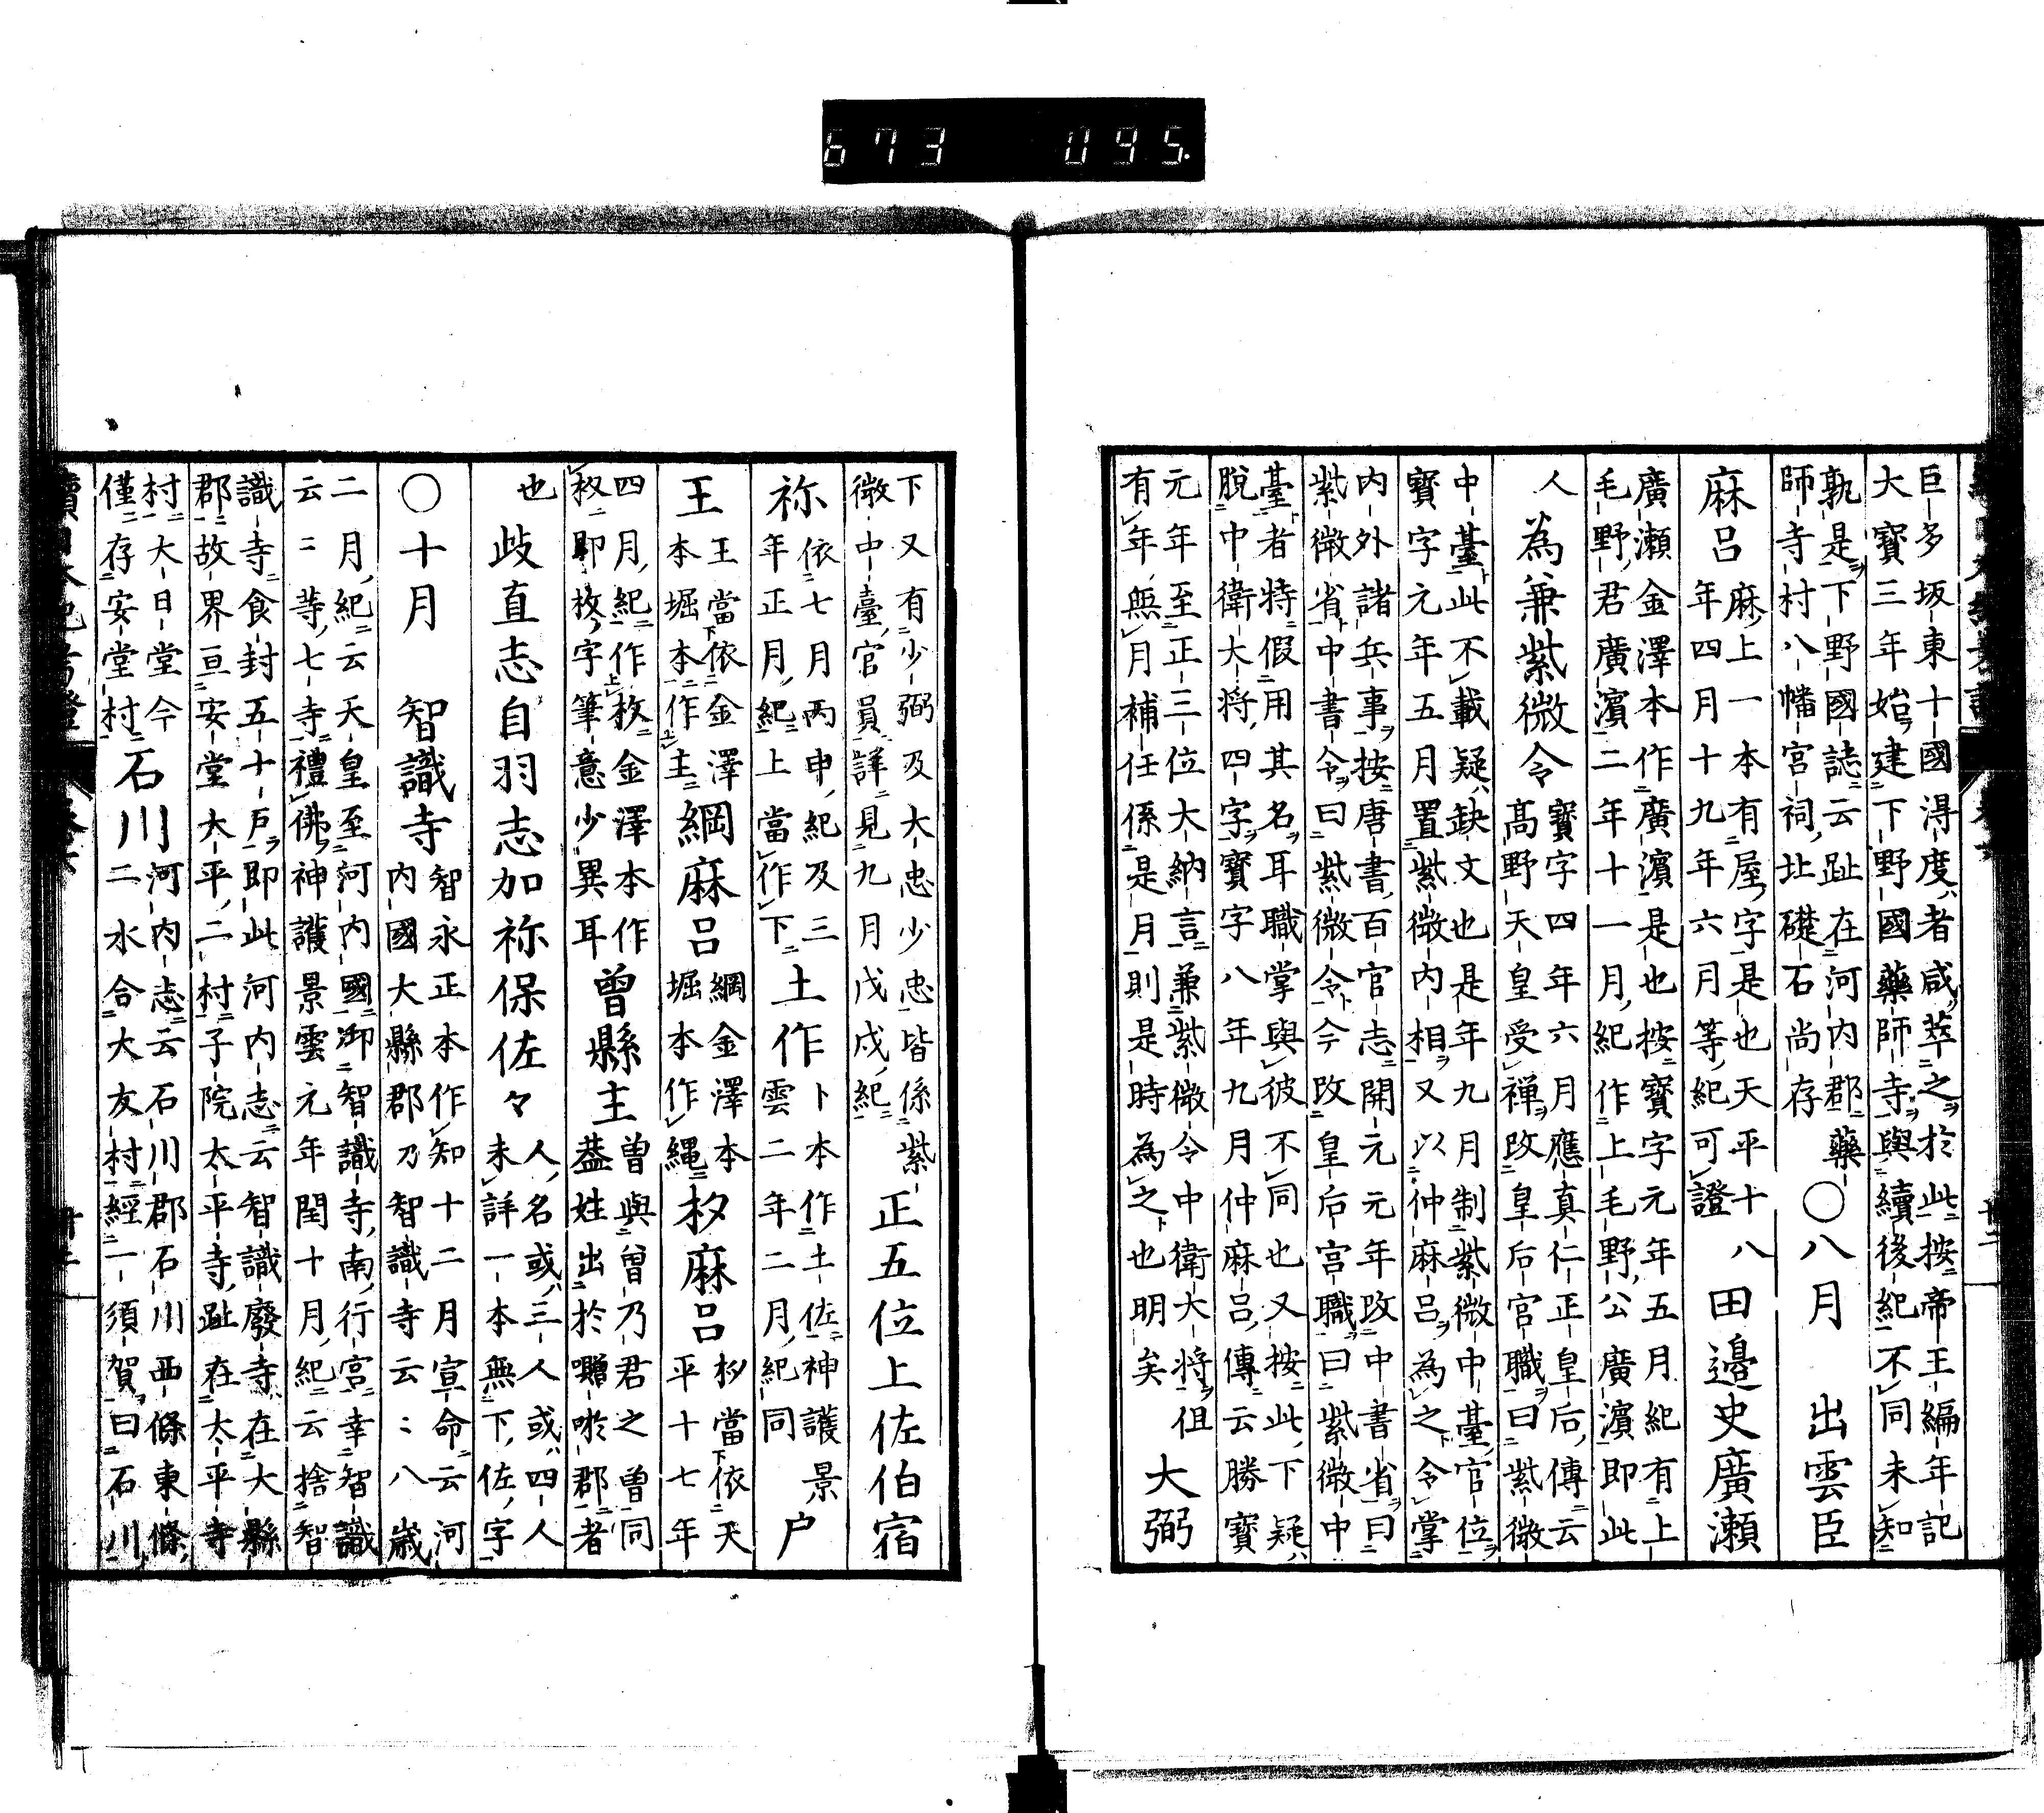 673 095.
巨多坂東十國淂度者咸萃之於此按帝王編年記
大寶三年始建下野國藥師寺與續後紀不同未知
孰是下野國誌云趾在河内郡藥
師寺村八幡宮祠北礎石尚存
○八月 出雲臣
田邉史廣瀬
麻呂
麻上一本有屋字是也天平十八
年四月十九年六月等紀可證
廣瀬金澤本作廣濱是也按寶字元年五月紀有上
毛野君廣濱二年十一月紀作上毛野公廣濱即此
人
為兼紫微令
寶字四年六月應真仁正皇后傳云
高野天皇受禅改皇后宮職曰紫微
中臺此不載疑缺文也是年九月制紫微中臺官位
寶字元年五月置紫微内相又以仲麻呂為之令掌
内外諸兵事按唐書百官志開元元年改中書省曰
紫微省中書令曰紫微令今改皇后宮職曰紫微中
臺者特假用其名耳職掌與彼不同也又按此下疑
脫中衛大将四字寶字八年九月仲麻呂傳云勝寶
元年至正三位大納言兼紫微令中衛大将但
有年無月補任係是月則是時為之也明矣
大弼
下又有少弼及大忠少忠皆係紫
微中臺官員詳見九月戊戌紀
正五位上佐伯宿
祢
依七月丙申紀及三
年正月紀上當作下
土作
卜本作土佐神護景
雲二年二月紀同
户
王
王當依金澤
本堀本作主
綱麻呂
綱金澤本
堀本作縄
杉麻呂
杉當依天
平十七年
四月紀作枚金澤本作
杦即枚字筆意少異耳
曽縣主
曽與曽乃君之曽同
葢姓出於囎唹郡者
也
歧直志自羽志加祢保佐々
人名或三人或四人
未詳一本無下佐字
○十月 智識寺
智永正本作知十二月宣命云河
内國大縣郡乃智識寺云〻八歳
二月紀云天皇至河内國御智識寺南行宮幸智識
云〻等七寺禮佛神護景雲元年閏十月紀云捨智
識寺食封五十戸即此河内志云智識廢寺在大縣
郡故界亘安堂大平二村子院太平寺趾在太平寺
村大日堂今
僅存安堂村
石川
河内志云石川郡石川西條東條
二水合大友村經一須賀曰石川